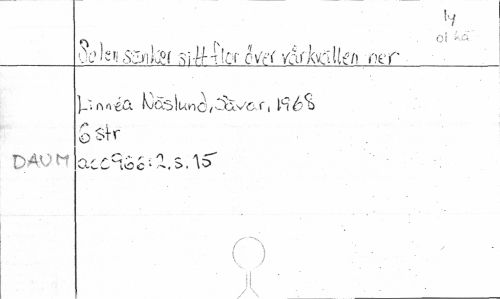 ly
ol hä
Solen sänker sitt flor över vårkvällen ner
Linnéa Näslund, Sävar, 1968
6 str
DAUM acc 966:2, s. 15